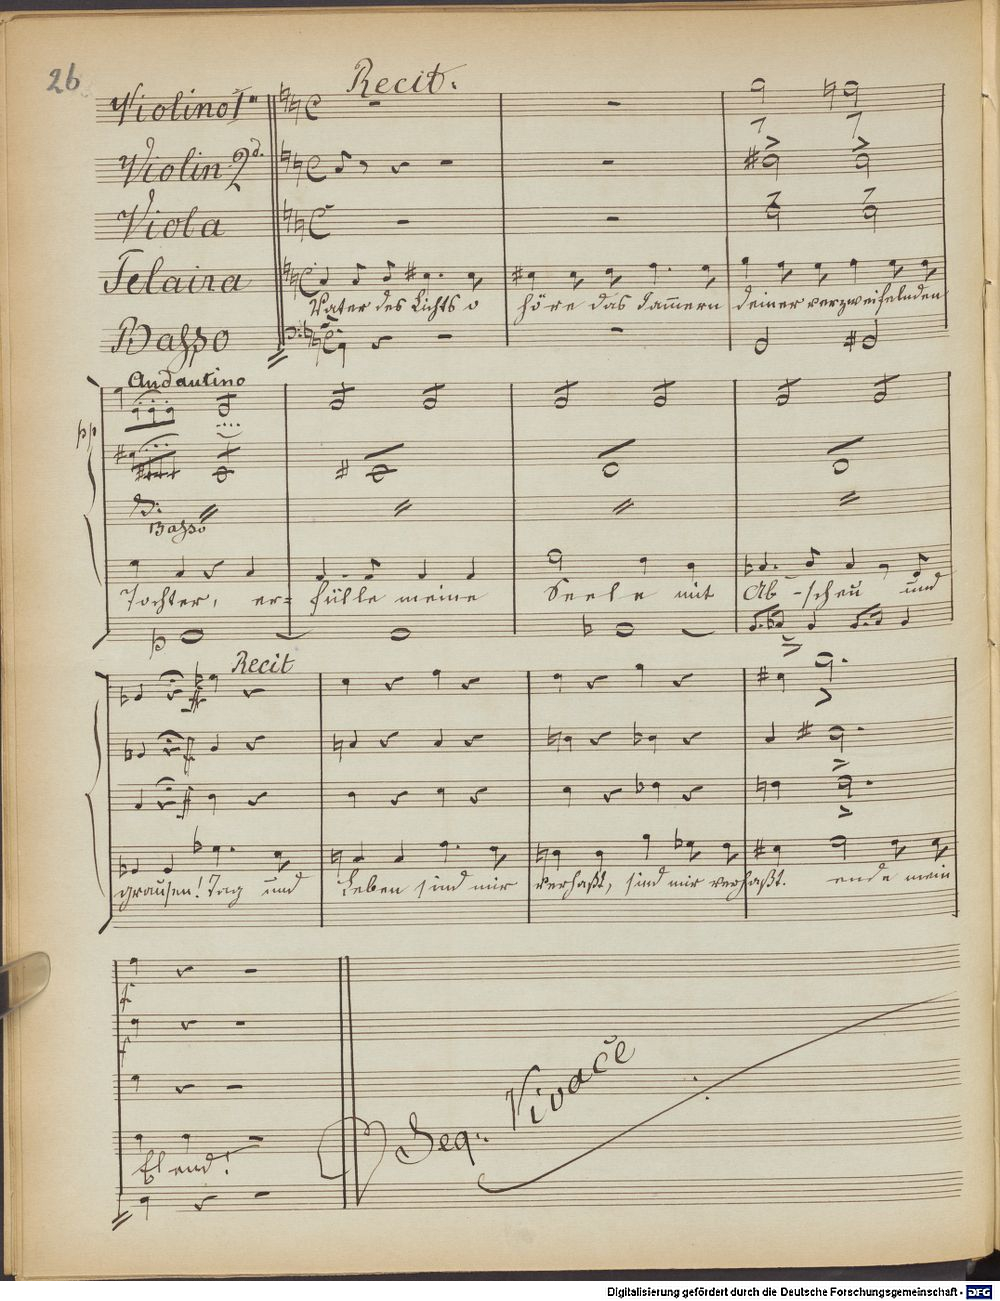 26
Recit.
Violino I^m
Violin 2^d.
Viola
Telaira
Vater des Lichts o höre das Jammern deiner verzweifelnden
Basso
Andantino
pp
Basso
Tochter, er= fülle meine Seele mit Ab-scheu und
p
Recit
ff
ff
ff
grausen! Tag und Leben sind mir verhaßt, sind mir verhaßt. ende mein
f
f
Elend!
Seq: Vivace
Digitalisierung gefördert durch die Deutsche Forschungsgemeinschaft - DFG